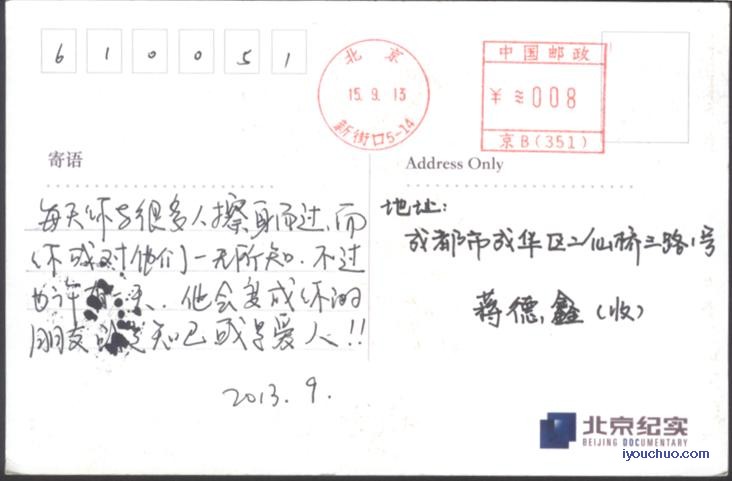 610051
北京
15.9.13
新街口5-14
中国邮政
¥≈008
京B(351)
寄语
每天你与很多人擦身而过,而
你或对他们一无所知.不过
也许有一天.他会变成你的
朋友 知己或是爱人!!
2013.9.
Address Only
地址:
成都市成华区二仙桥三路1号
蒋德鑫(收)
北京纪实
BEIJING DOCUMENTARY
iyouchuo.com